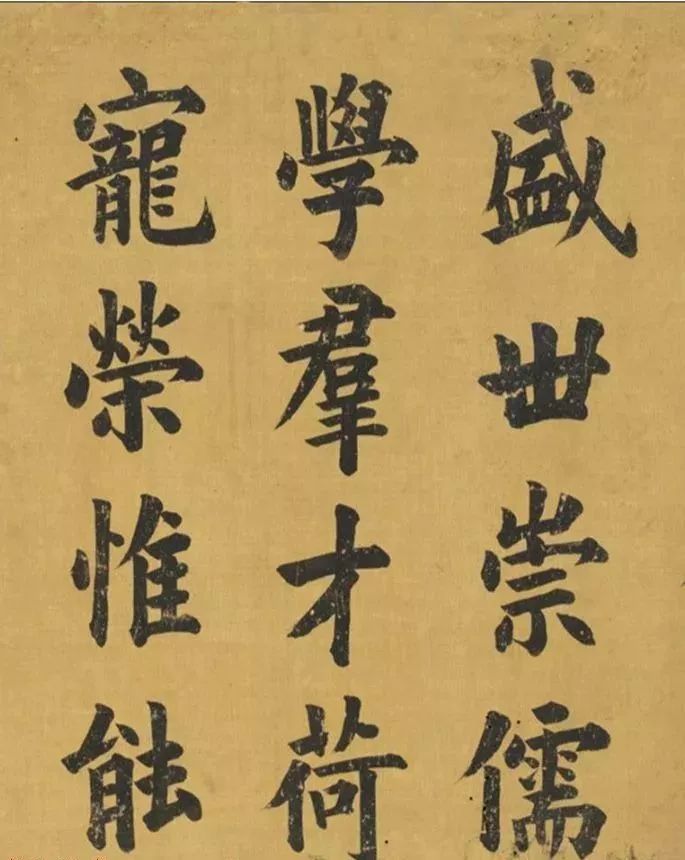 盛世崇儒
學羣才荷
寵榮惟能